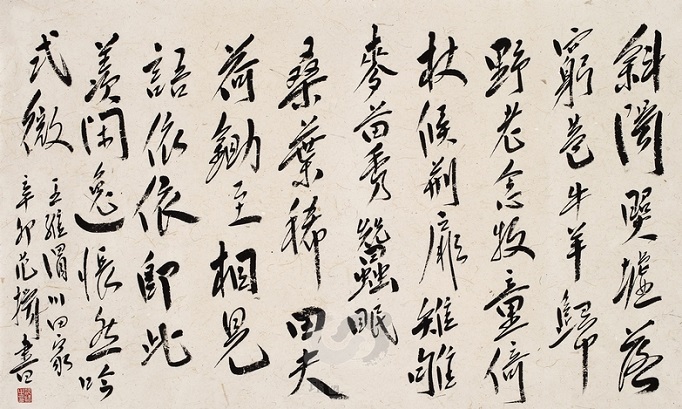 斜陽照墟落
窮巷牛羊歸
野老念牧童倚
杖候荊扉雉雊
麥苗秀蠶眠
桑葉稀田夫
荷鋤至相見
語依依即此
羨閑逸悵然吟
式微
王維渭川田家
辛卯范揚書